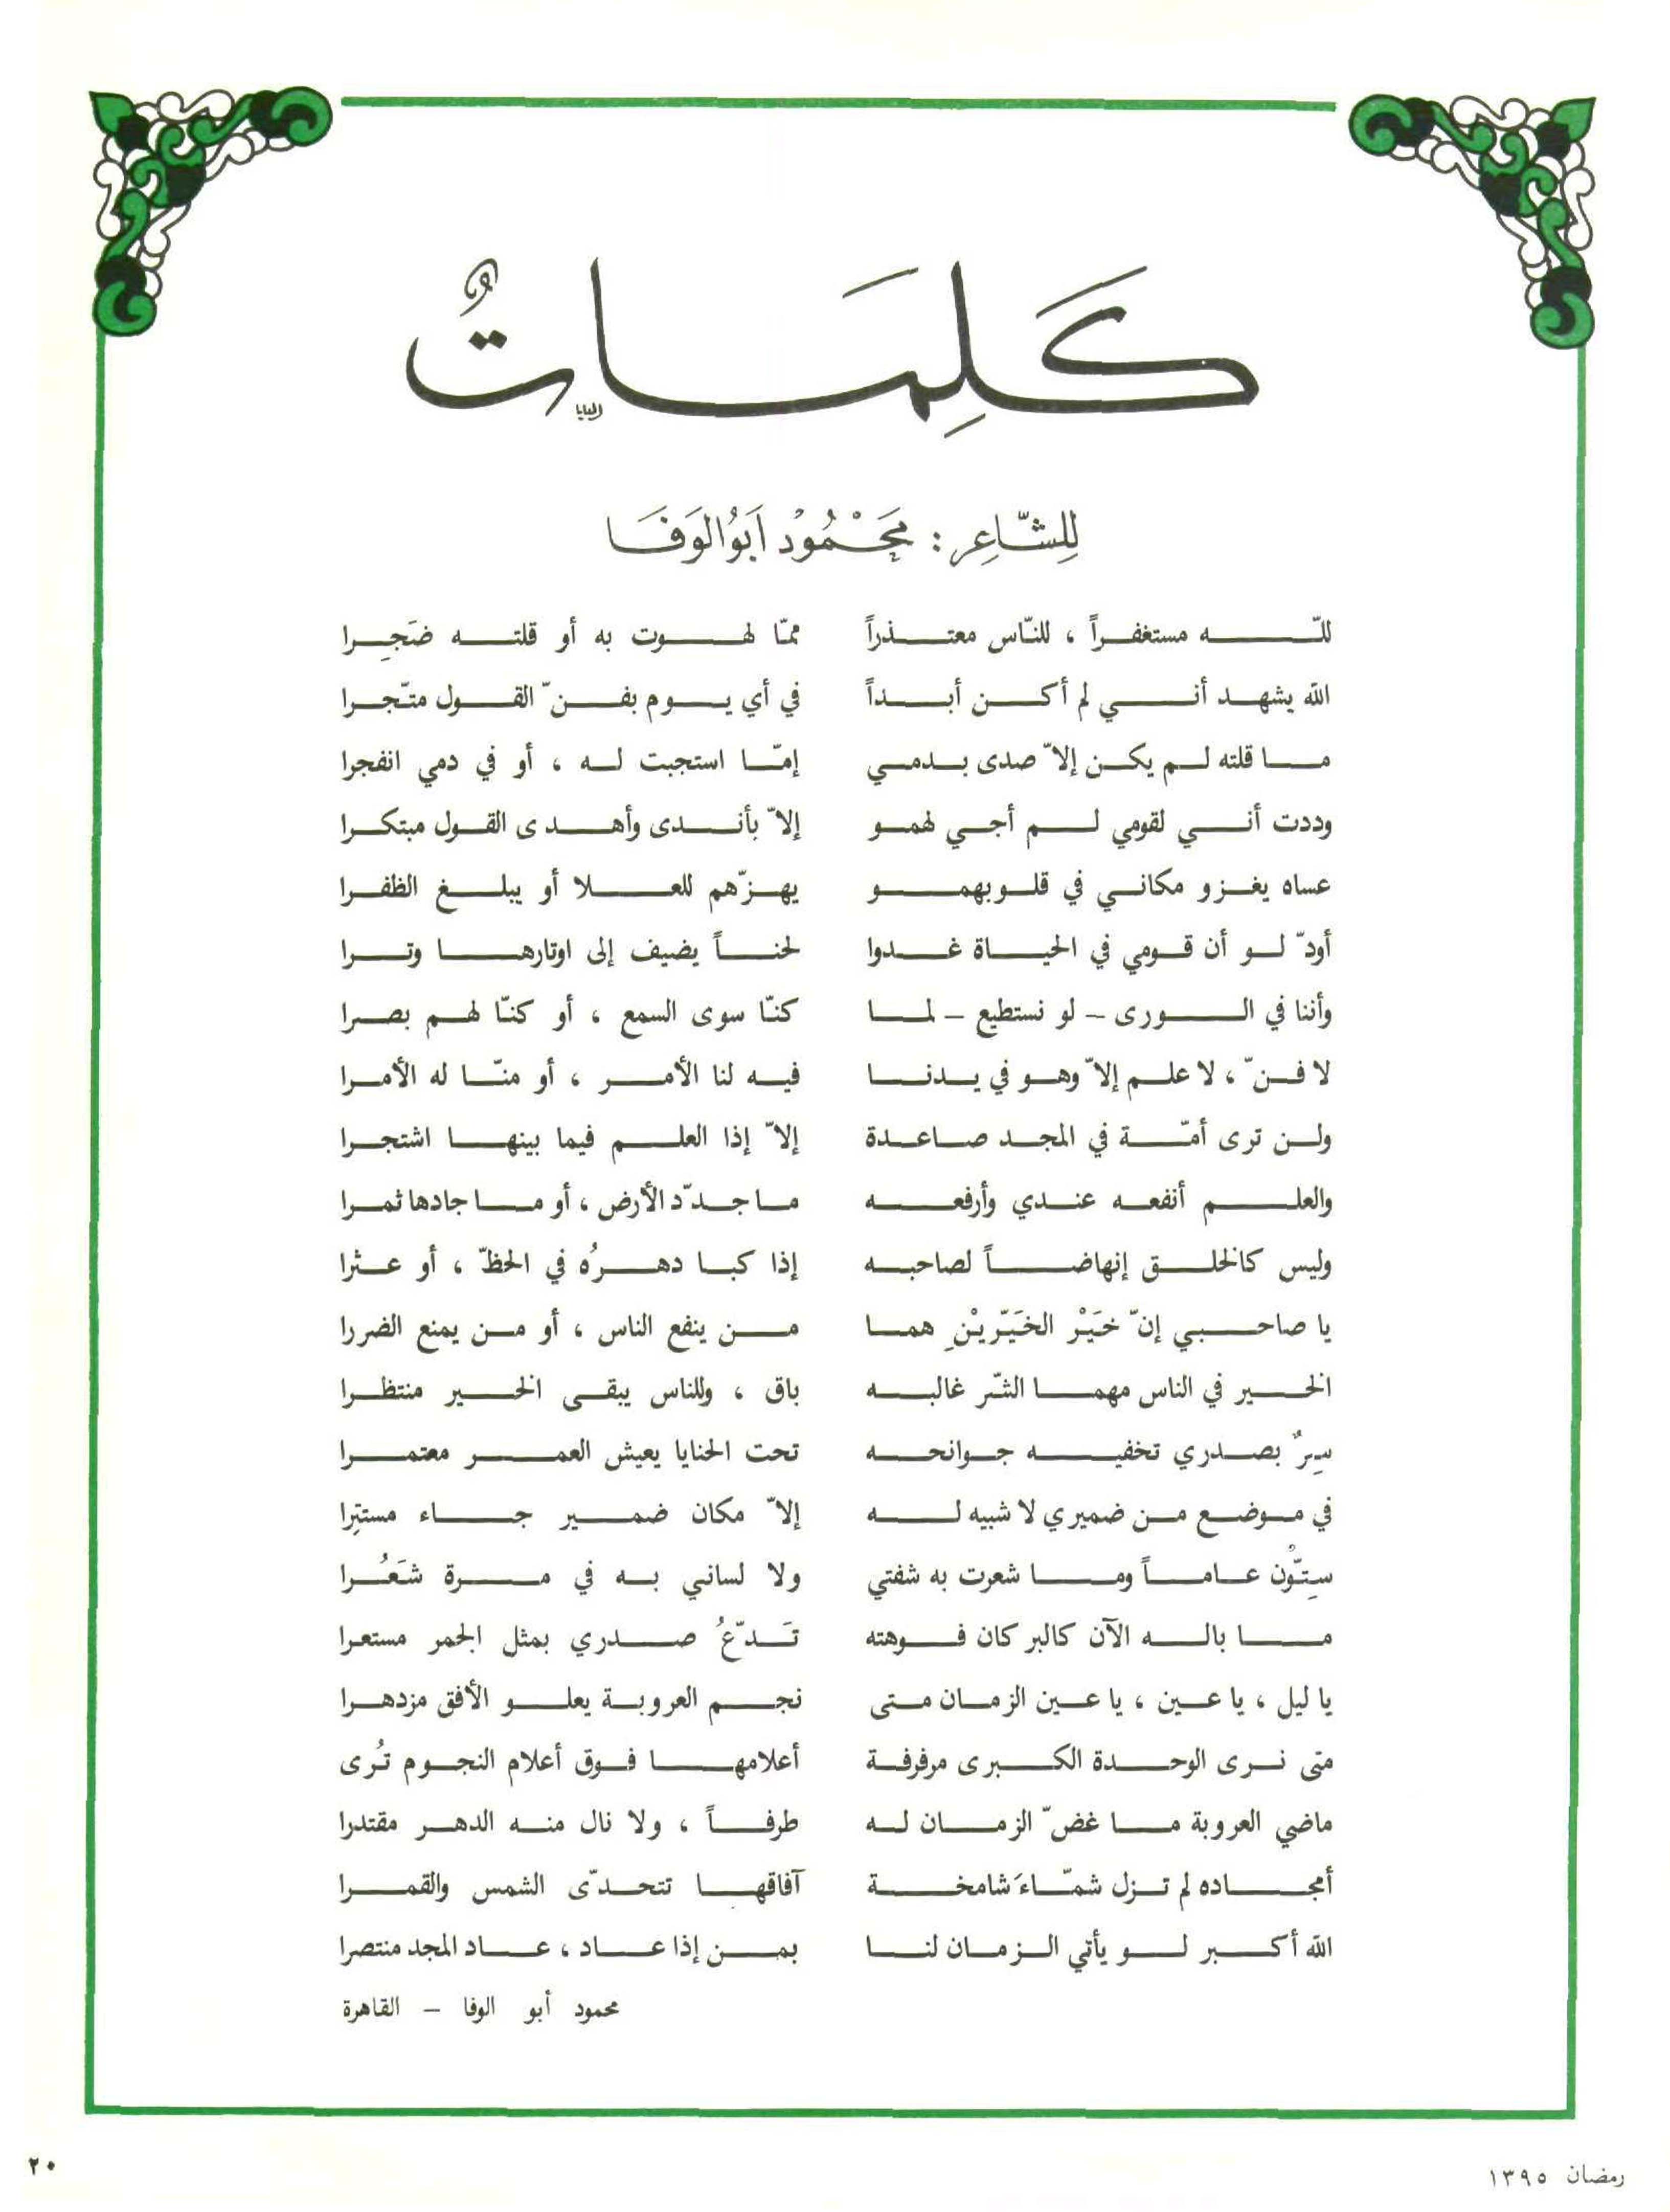 كَلِمَاتٌ
للشّاعِر : مَحْمُوُد اَبوُالوَفَا
للّه مستغفراً ، للنّاس معتذراً ممّا لهوت به أو قلته ضَجِرا
الله يشهد أنني لم أكن أبداً في أي يوم بفنّ القول متّجرا
ما قلته لم يكن إلاّ صدى بدمي إمّا استجبت له ، أو في دمي انفجرا
وددت أني لقومي لم أجي لهمو إلاّ بأندى وأهدى القول مبتكرا
عساه يغزو مكاني في قلوبهمو يهزّهم للعلا أو يبلغ الظفرا
أودّ لو أن قومي في الحياة غدوا لحناً يضيف إلى اوتارها وترا
وأننا في الورى – لو نستطيع – لما كنّا سوى السمع ، أو كنّا لهم بصرا
لا فنّ ، لا علم إلاّ وهو في يدنا فيه لنا الأمر ، أو منّا له الأمرا
ولن ترى أمّة في المجد صاعدة إلاّ إذا العلم فيما بينها اشتجرا
والعلم أنفعه عندي وأرفعه ما جدّد الأرض ، أو ما جادها ثمرا
وليس كالخلق إنهاضاً لصاحبه إذا كبا دهرُه في الحظّ ، أو عثرا
يا صاحبي إنّ خَيْر الخَيّريْنِ هما من ينفع الناس ، أو من يمنع الضررا
الخير في الناس مهما الشّر غالبه باق ، وللناس يبقى الخير منتظرا
سِرٌ بصدري تخفيه جوانحه تحت الحنايا يعيش العمر معتمرا
في موضع من ضميري لا شبيه له إلاّ مكان ضمير جاء مستتِرا
سِتّوُن عاماً وما شعرت به شفتي ولا لساني به في مرة شَعُرا
ما باله الآن كالبركان فوهته تَدّعُ صدري بمثل الجمر مستعرا
يا ليل ، يا عين ، يا عين الزمان متى نجم العروبة يعلو الأفق مزدهرا
متى نرى الوحدة الكبرى مرفرفة أعلامها فوق أعلام النجوم تُرى
ماضي العروبة ما غضّ الزمان له طرفاً ، ولا نال منه الدهر مقتدرا
أمجاده لم تزل شمّاءَ شامخة آفاقها تتحدّى الشمس والقمرا
الله أكبر لو يأتي الزمان لنا بمن إذا عاد ، عاد المجد منتصرا
محمود أبو الوفا – القاهرة
رمضان ١٣٩٥
٢٠